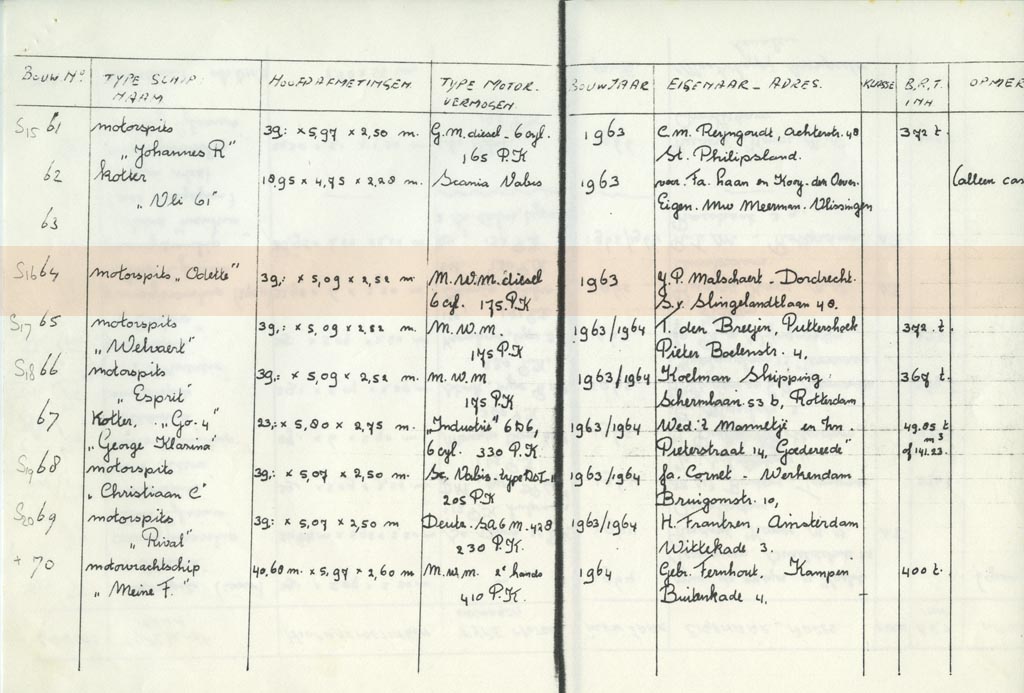 BOUW No. TYPE SCHIP. HOOFDAFMETINGEN TYPE MOTOR. BOUWJAAR EIGENAAR - ADRES. KLASSE B.R.T. OPMER
NAAM VERMOGEN INH
S15 61 motorspits 39,- x 5,97 x 2,50 m. G.m. diesel - 6 cyl. 1963 C.M. Reyngoudt, Achterstr. 48 372 t.
"Johannes R" 165 P.K St. Philipsland.
62 Kotter 18,95 x 4,75 x 2,28 m. Scania Vabis 1963 voor. Fa. Haan en Kooy. den Oever. (alleen cas
"Vli 61" Eigen. Mw Meerman. Vlissingen
63
S16 64 motorspits "Odette" 39,- x 5,09 x 2,52 m. M.W.M. diesel 1963 J.P. Malschaert - Dordrecht.
6 cyl. 175 P.K S.v. Slingelandtlaan 48.
S17 65 motorspits 39,- x 5,09 x 2,52 m. M.W.M. 1963/1964 T. den Breejen, Puttershoek 372 t.
"Welvaert" 175 P.K Pieter Boelenstr. 4.
S18 66 motorspits 39,- x 5,09 x 2,52 m. M.W.M 1963/1964 Koelman Shipping 367 t.
"Esprit" 175 P.K Schermlaan 53 b, Rotterdam
67 Kotter, "Go-4" 23,- x 5,80 x 2,75 m. "Industrie" 6D6, 1963/1964 Wed. 't Mannetje en Zn. 49.05 t
"George Klarina" 6 cyl. 330 P.K Pieterstraat 14, Goedereede" of 141.23 m3
S19 68 motorspits 39,- x 5,07 x 2,50 m. Sc. Vabis - type 1963/1964 fa. Cornet - Werkendam
"Christiaan C" 205 P.K Bruigomstr. 10,
S20 69 motorspits 39,- x 5,07 x 2,50 m Deutz. 428 1963/1964 H. Frantzen, Amsterdam
"Rival" 230 P.K. Wittekade 3.
+ 70 motorvrachtschip 40,60 m. x 5,97 x 2,60 m. M.W.M. 2e hands 1964 Gebr. Fernhout, Kampen 400 t.
"Meine F." 410 P.K. Buitenkade 4.